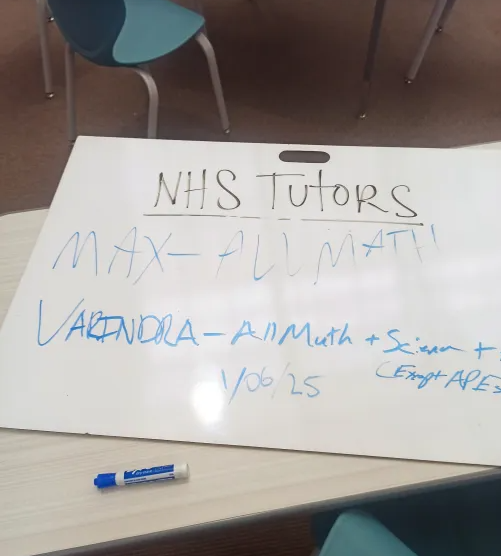 NHS TUTORS
MAX - ALL MATH
VARINDRA - All Math + Science +
(Except APES
1/06/25